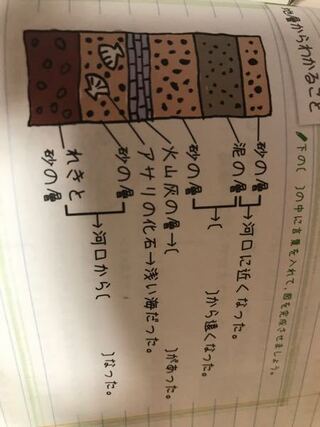 地層からわかること
下の(　　)の中に言葉を入れて、図を完成させましょう。
砂の層
泥の層
→河口に近くなった。
砂の層
→(　　　)から遠くなった。
火山灰の層→(　　　)があった。
アサリの化石→浅い海だった。
砂の層
れきと砂の層
→河口から(　　　)なった。